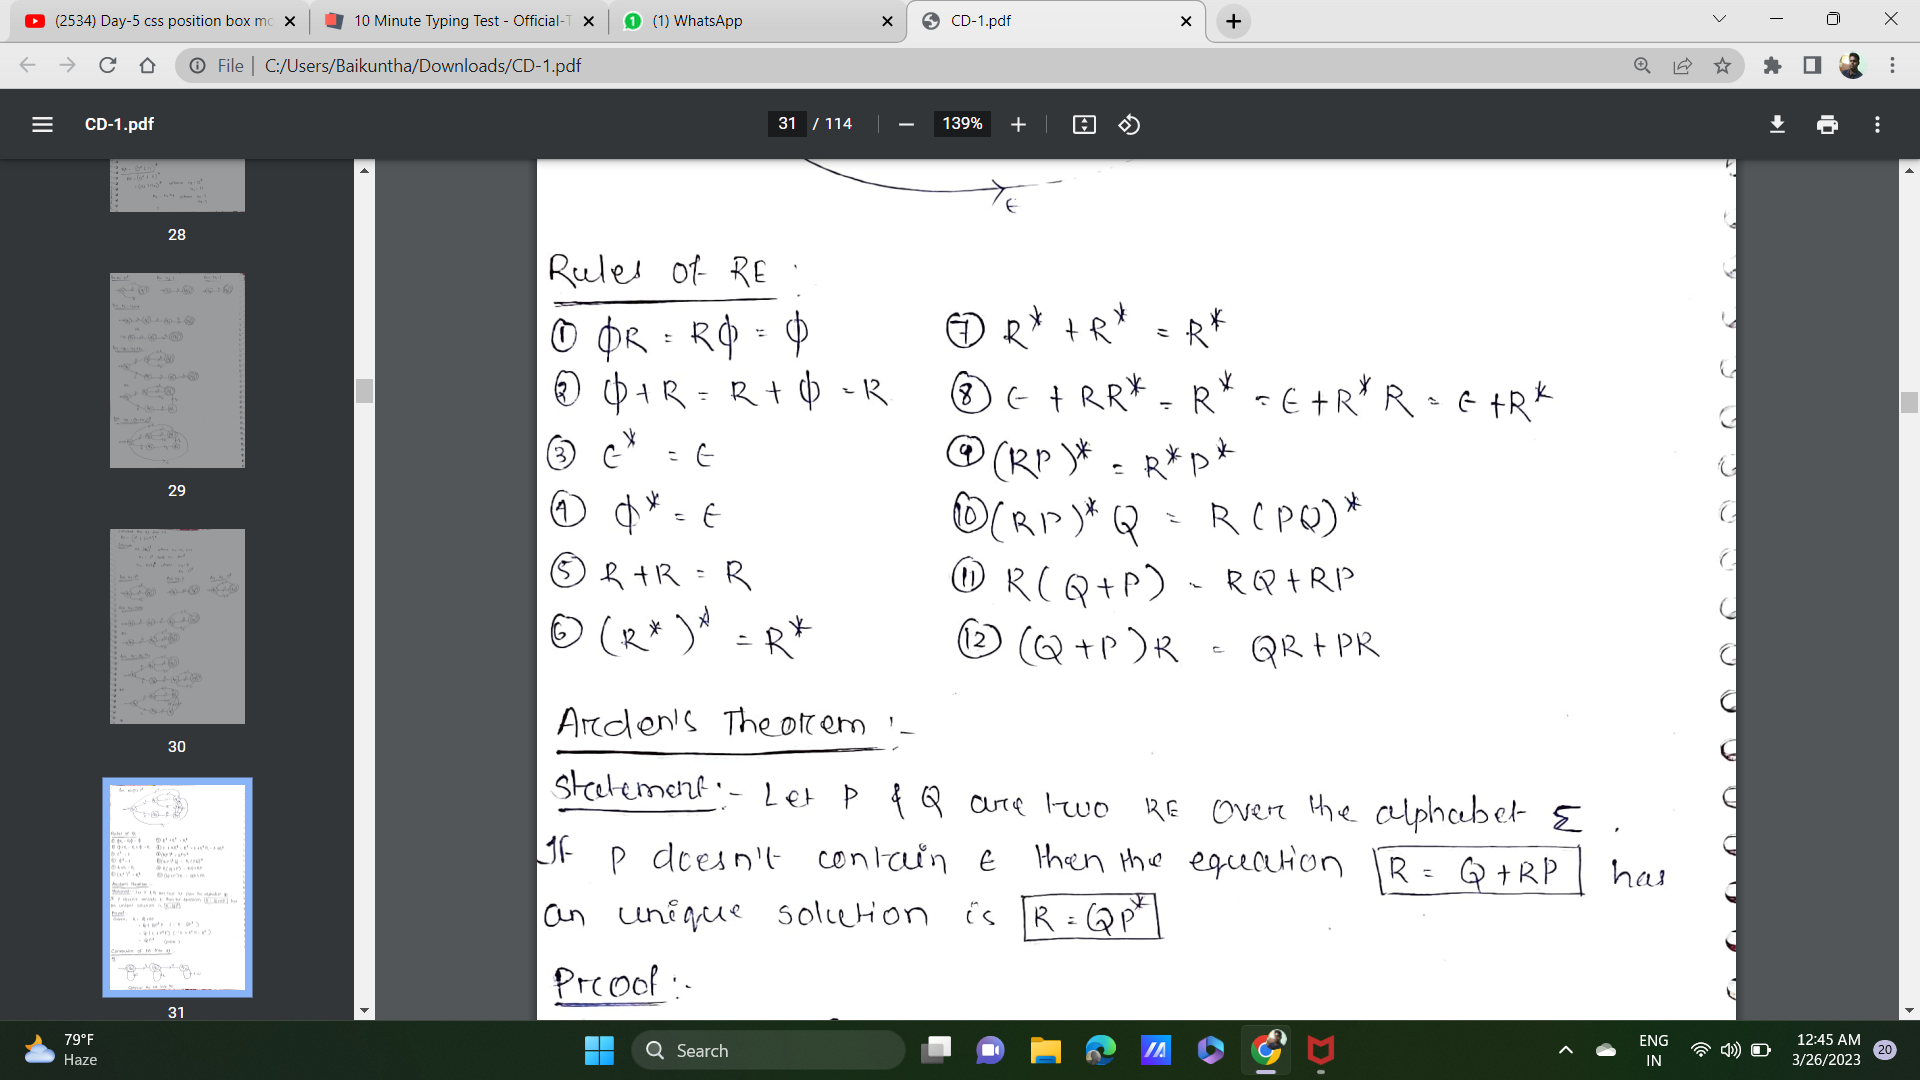 (2534) Day-5 css position box mo
10 Minute Typing Test - Official-T
(1) WhatsApp
CD-1.pdf
File | C:/Users/Baikuntha/Downloads/CD-1.pdf
CD-1.pdf
31 / 114
139%
28
29
30
31
ϵ
Rules of RE :
① ϕR = Rϕ = ϕ
② ϕ+R = R+ϕ = R
③ ϵ* = ϵ
④ ϕ* = ϵ
⑤ R+R = R
⑥ (R*)* = R*
⑦ R* + R* = R*
⑧ ϵ + RR* = R* = ϵ+R*R = ϵ+R*
⑨ (RP)* = R*P*
⑩ (RP)*Q = R(PQ)*
⑪ R(Q+P) = RQ+RP
⑫ (Q+P)R = QR+PR
Arden's Theorem :-
Statement:- Let P & Q are two RE over the alphabet Σ.
If P doesn't contain ϵ then the equation R = Q+RP has
an unique solution is R = QP*
Proof :-
79°F
Haze
Search
ENG
IN
12:45 AM
3/26/2023
20